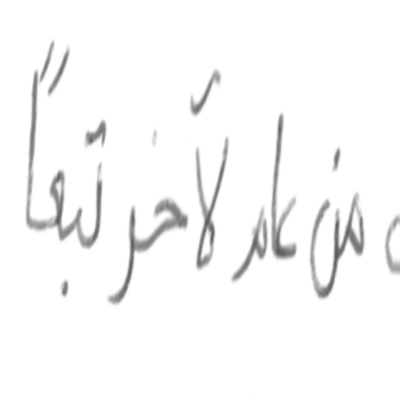 من عام لآخر تبعاً